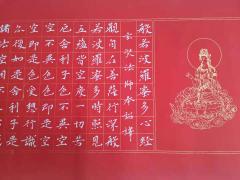 般若波羅蜜多心經
玄奘法師奉詔譯
觀自在菩薩行深般
若波羅蜜多時照見
五蘊皆空度一切苦
厄舍利子色不異空
空不異色色即是空
空即是色受想行識
亦復如是舍利子是